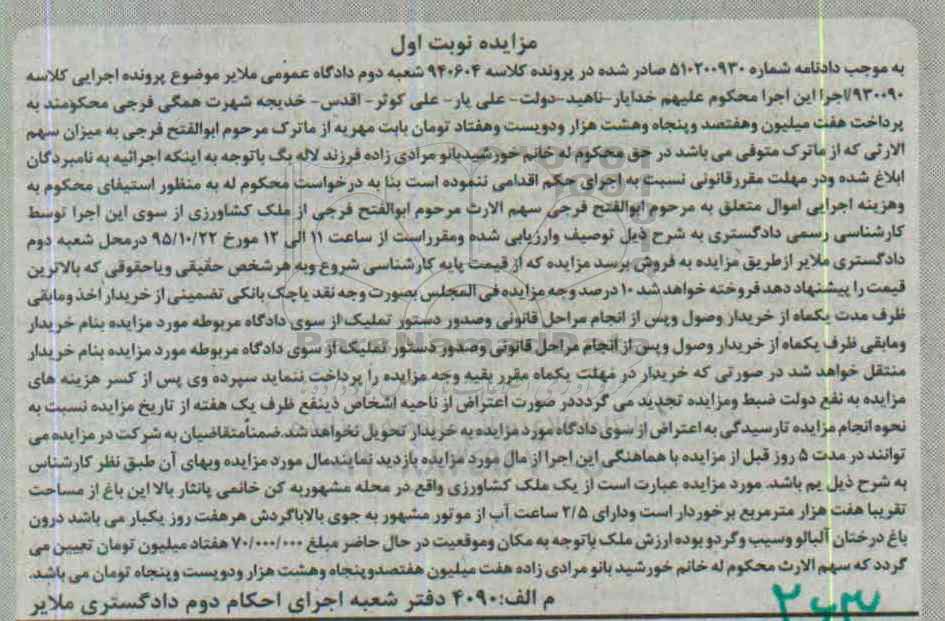 مزایده نوبت اول
به موجب دادنامه شماره ۵۱۰۲۰۰۹۳۰ صادر شده در پرونده کلاسه ۹۴۰۶۰۴ شعبه دوم دادگاه عمومی ملایر موضوع پرونده اجرایی کلاسه
۹۳۰۰۹۰/اجرا این اجرا محکوم علیهم خدایار-ناهید-دولت- علی یار- علی کوثر- اقدس- خدیجه شهرت همگی فرجی محکومند به
پرداخت هفت میلیون وهفتصد وپنجاه وهشت هزار ودویست وهفتاد تومان بابت مهریه از ماترک مرحوم ابوالفتح فرجی به میزان سهم
الارثی که از ماترک متوفی می باشد در حق محکوم له خانم خورشیدبانو مرادی زاده فرزند لاله بگ باتوجه به اینکه اجرائیه به نامبردگان
ابلاغ شده ودر مهلت مقررقانونی نسبت به اجرای حکم اقدامی ننموده است بنا به درخواست محکوم له به منظور استیفای محکوم به
وهزینه اجرایی اموال متعلق به مرحوم ابوالفتح فرجی سهم الارث مرحوم ابوالفتح فرجی از ملک کشاورزی از سوی این اجرا توسط
کارشناسی رسمی دادگستری به شرح ذیل توصیف وارزیابی شده ومقرراست از ساعت ۱۱ الی ۱۲ مورخ ۹۵/۱۰/۲۲ درمحل شعبه دوم
دادگستری ملایر ازطریق مزایده به فروش برسد مزایده که از قیمت پایه کارشناسی شروع وبه هرشخص حقیقی ویاحقوقی که بالاترین
قیمت را پیشنهاد دهد فروخته خواهد شد ۱۰ درصد وجه مزایده فی المجلس بصورت وجه نقد یاچک بانکی تضمینی از خریدار اخذ ومابقی
ظرف مدت یکماه از خریدار وصول وپس از انجام مراحل قانونی وصدور دستور تملیک از سوی دادگاه مربوطه مورد مزایده بنام خریدار
ومابقی ظرف یکماه از خریدار وصول و پس از انجام مراحل قانونی وصدور دستور تملیک از سوی دادگاه مربوطه مورد مزایده بنام خریدار
منتقل خواهد شد در صورتی که خریدار در مهلت یکماه مقرر بقیه وجه مزایده را پرداخت ننماید سپرده وی پس از کسر هزینه های
مزایده به نفع دولت ضبط ومزایده تجدید می گردددر صورت اعتراض از ناحیه اشخاص ذینفع ظرف یک هفته از تاریخ مزایده نسبت به
نحوه انجام مزایده تارسیدگی به اعتراض از سوی دادگاه مورد مزایده به خریدار تحویل نخواهد شد.ضمناًمتقاضیان به شرکت در مزایده می
توانند در مدت ۵ روز قبل از مزایده با هماهنگی این اجرا از مال مورد مزایده بازدید نمایندمال مورد مزایده وبهای آن طبق نظر کارشناس
به شرح ذیل یم باشد. مورد مزایده عبارت است از یک ملک کشاورزی واقع در محله مشهوربه کن خانمی پانثار بالا این باغ از مساحت
تقریبا هفت هزار مترمربع برخوردار است ودارای ۲/۵ ساعت آب از موتور مشهور به جوی بالاباگردش هرهفت روز یکبار می باشد درون
باغ درختان آلبالو وسیب وگردو بوده ارزش ملک باتوجه به مکان وموقعیت در حال حاضر مبلغ ۷۰/۰۰۰/۰۰۰ هفتاد میلیون تومان تعیین می
گردد که سهم الارث محکوم له خانم خورشید بانو مرادی زاده هفت میلیون هفتصدوپنجاه وهشت هزار ودویست وپنجاه تومان می باشد.
م الف:۴۰۹۰ دفتر شعبه اجرای احکام دوم دادگستری ملایر